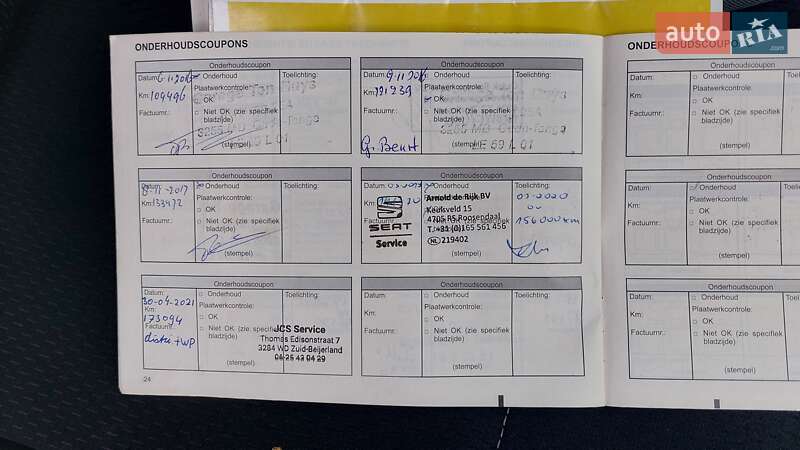 auto RIA .com
ONDERHOUDSCOUPONS
Onderhoudscoupon
Datum: 6.11.2015
Onderhoud
Toelichting:
Km: 104496
Plaatwerkcontrole:
OK
Factuurnr.:
Niet OK (zie specifiek
bladzijde)
(stempel)
Onderhoudscoupon
Datum: 9.11.2016
Onderhoud
Toelichting:
Km: 121239
Plaatwerkcontrole:
OK
Factuurnr.:
Niet OK (zie specifiek
bladzijde)
(stempel)
Onderhoudscoupon
8-11-2017
Onderhoud
Toelichting:
Km: 133472
Plaatwerkcontrole:
OK
Factuurnr.:
Niet OK (zie specifiek
bladzijde)
(stempel)
Onderhoudscoupon
SEAT
Service
Arnold de Rijk BV
Keurveld 15
4705 RS Roosendaal
T.+31 (0)165 561 456
NL 219402
2020
156000km
Factuurnr.:
(stempel)
Onderhoudscoupon
Datum:
30-04-2021
Onderhoud
Toelichting:
Km:
173094
Plaatwerkcontrole:
OK
Factuurnr.:
distri + WP
Niet OK (zie specifiek
bladzijde)
JCS Service
Thomas Edisonstraat 7
3284 WD Zuid-Beijerland
06 25 43 04 29
(stempel)
Onderhoudscoupon
Datum:
Onderhoud
Toelichting:
Km:
Plaatwerkcontrole:
OK
Factuurnr.:
Niet OK (zie specifiek
bladzijde)
(stempel)
24
ONDERHOUDSCOUPO
Onderhoudscoupon
Datum:
Onderhoud
Km:
Plaatwerkcontrole:
OK
Factuurnr.:
Niet OK (zie spe
bladzijde)
(stempel)
Onderhoudscoupon
Datum:
Onderhoud
Km:
Plaatwerkcontrole:
OK
Factuurnr.:
Niet OK (zie spe
bladzijde)
(stempel)
Onderhoudscoupon
Datum:
Onderhoud
Km:
Plaatwerkcontrole:
OK
Factuurnr.:
Niet OK (zie spe
bladzijde)
(stempel)